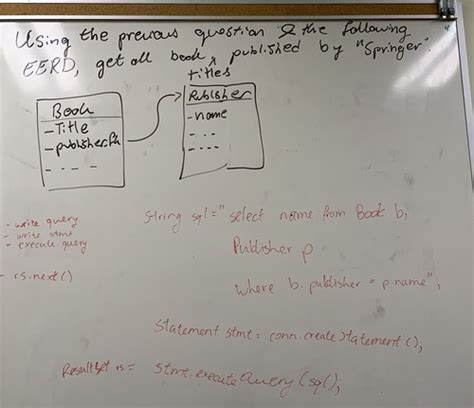 Using the previous question & the following
EERD, get all book titles published by "Springer".
Book
- Title
- publisherfk
- - - -
Publisher
- name
- - - -
- - - -
- write query
- write stmt
- execute query
- rs.next()
String sql = "select name from Book b,
Publisher p
where b.publisher = p.name";
Statement stmt = conn.createStatement();
ResultSet rs = stmt.executeQuery(sql);